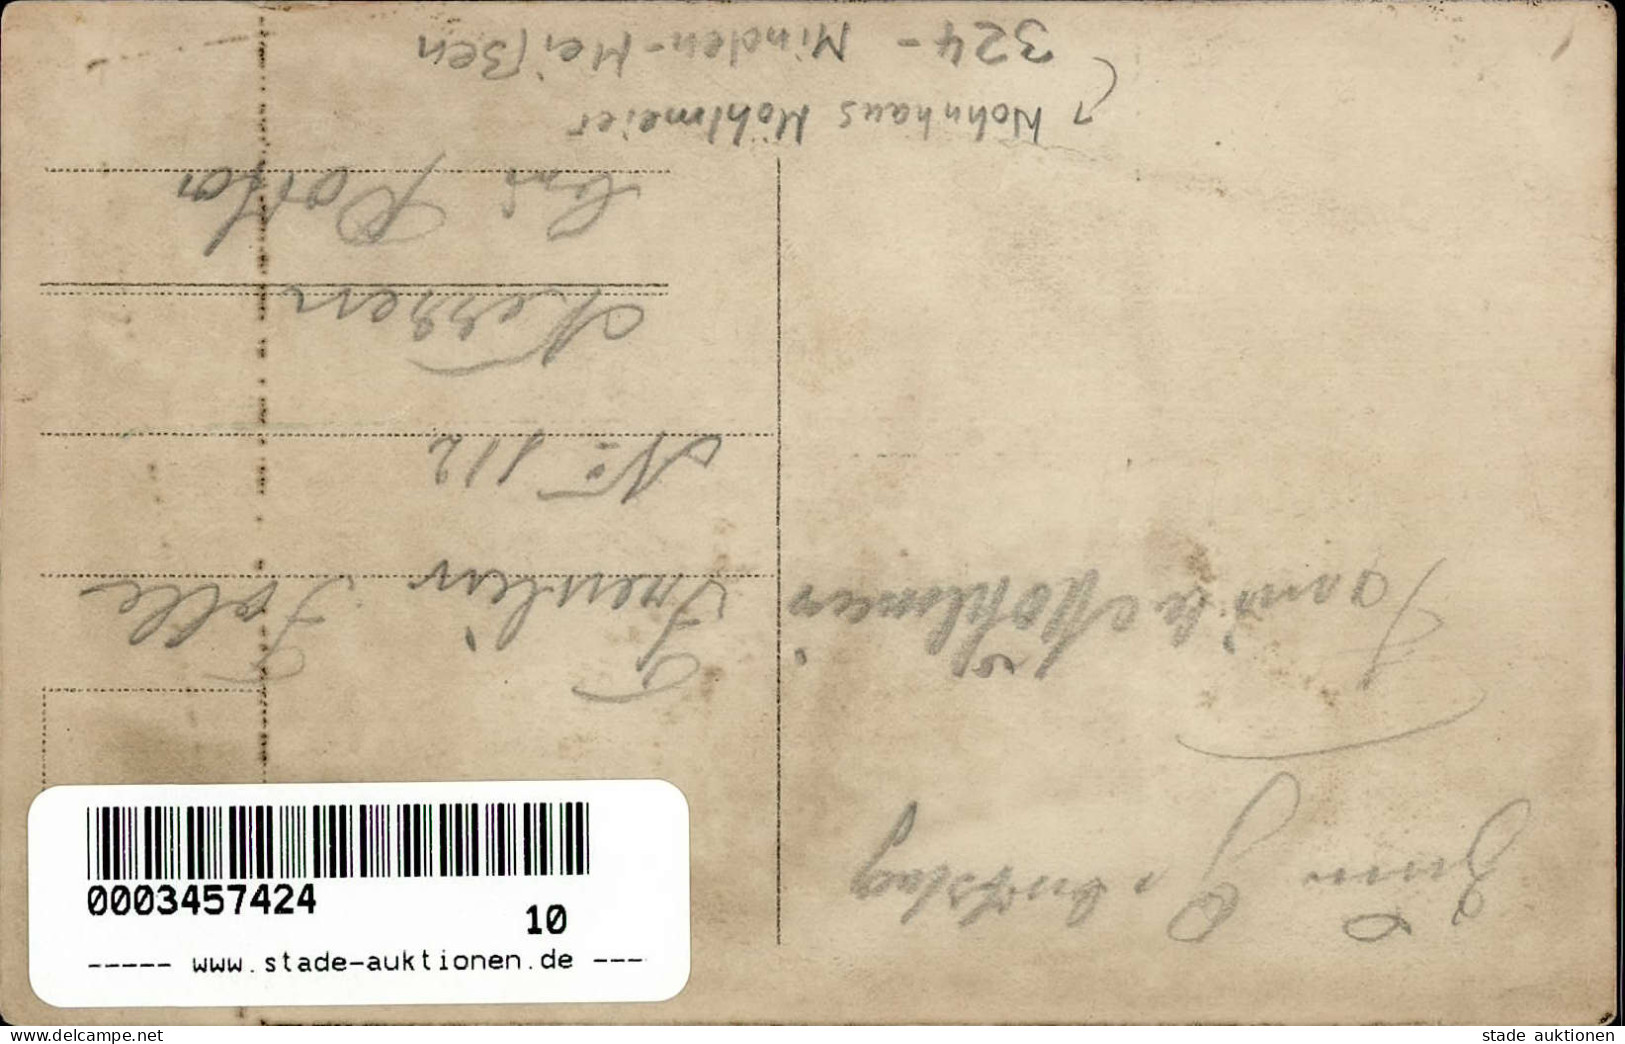 Zum Geburtstag
Familie Möhlmeier
Fräulein
No 112
Meissen
bei Porta
↑ Wohnhaus Möhlmeier
324 - Minden-Meißen
0003457424
10
----- www.stade-auktionen.de ---
www.delcampe.net
stade_auktionen